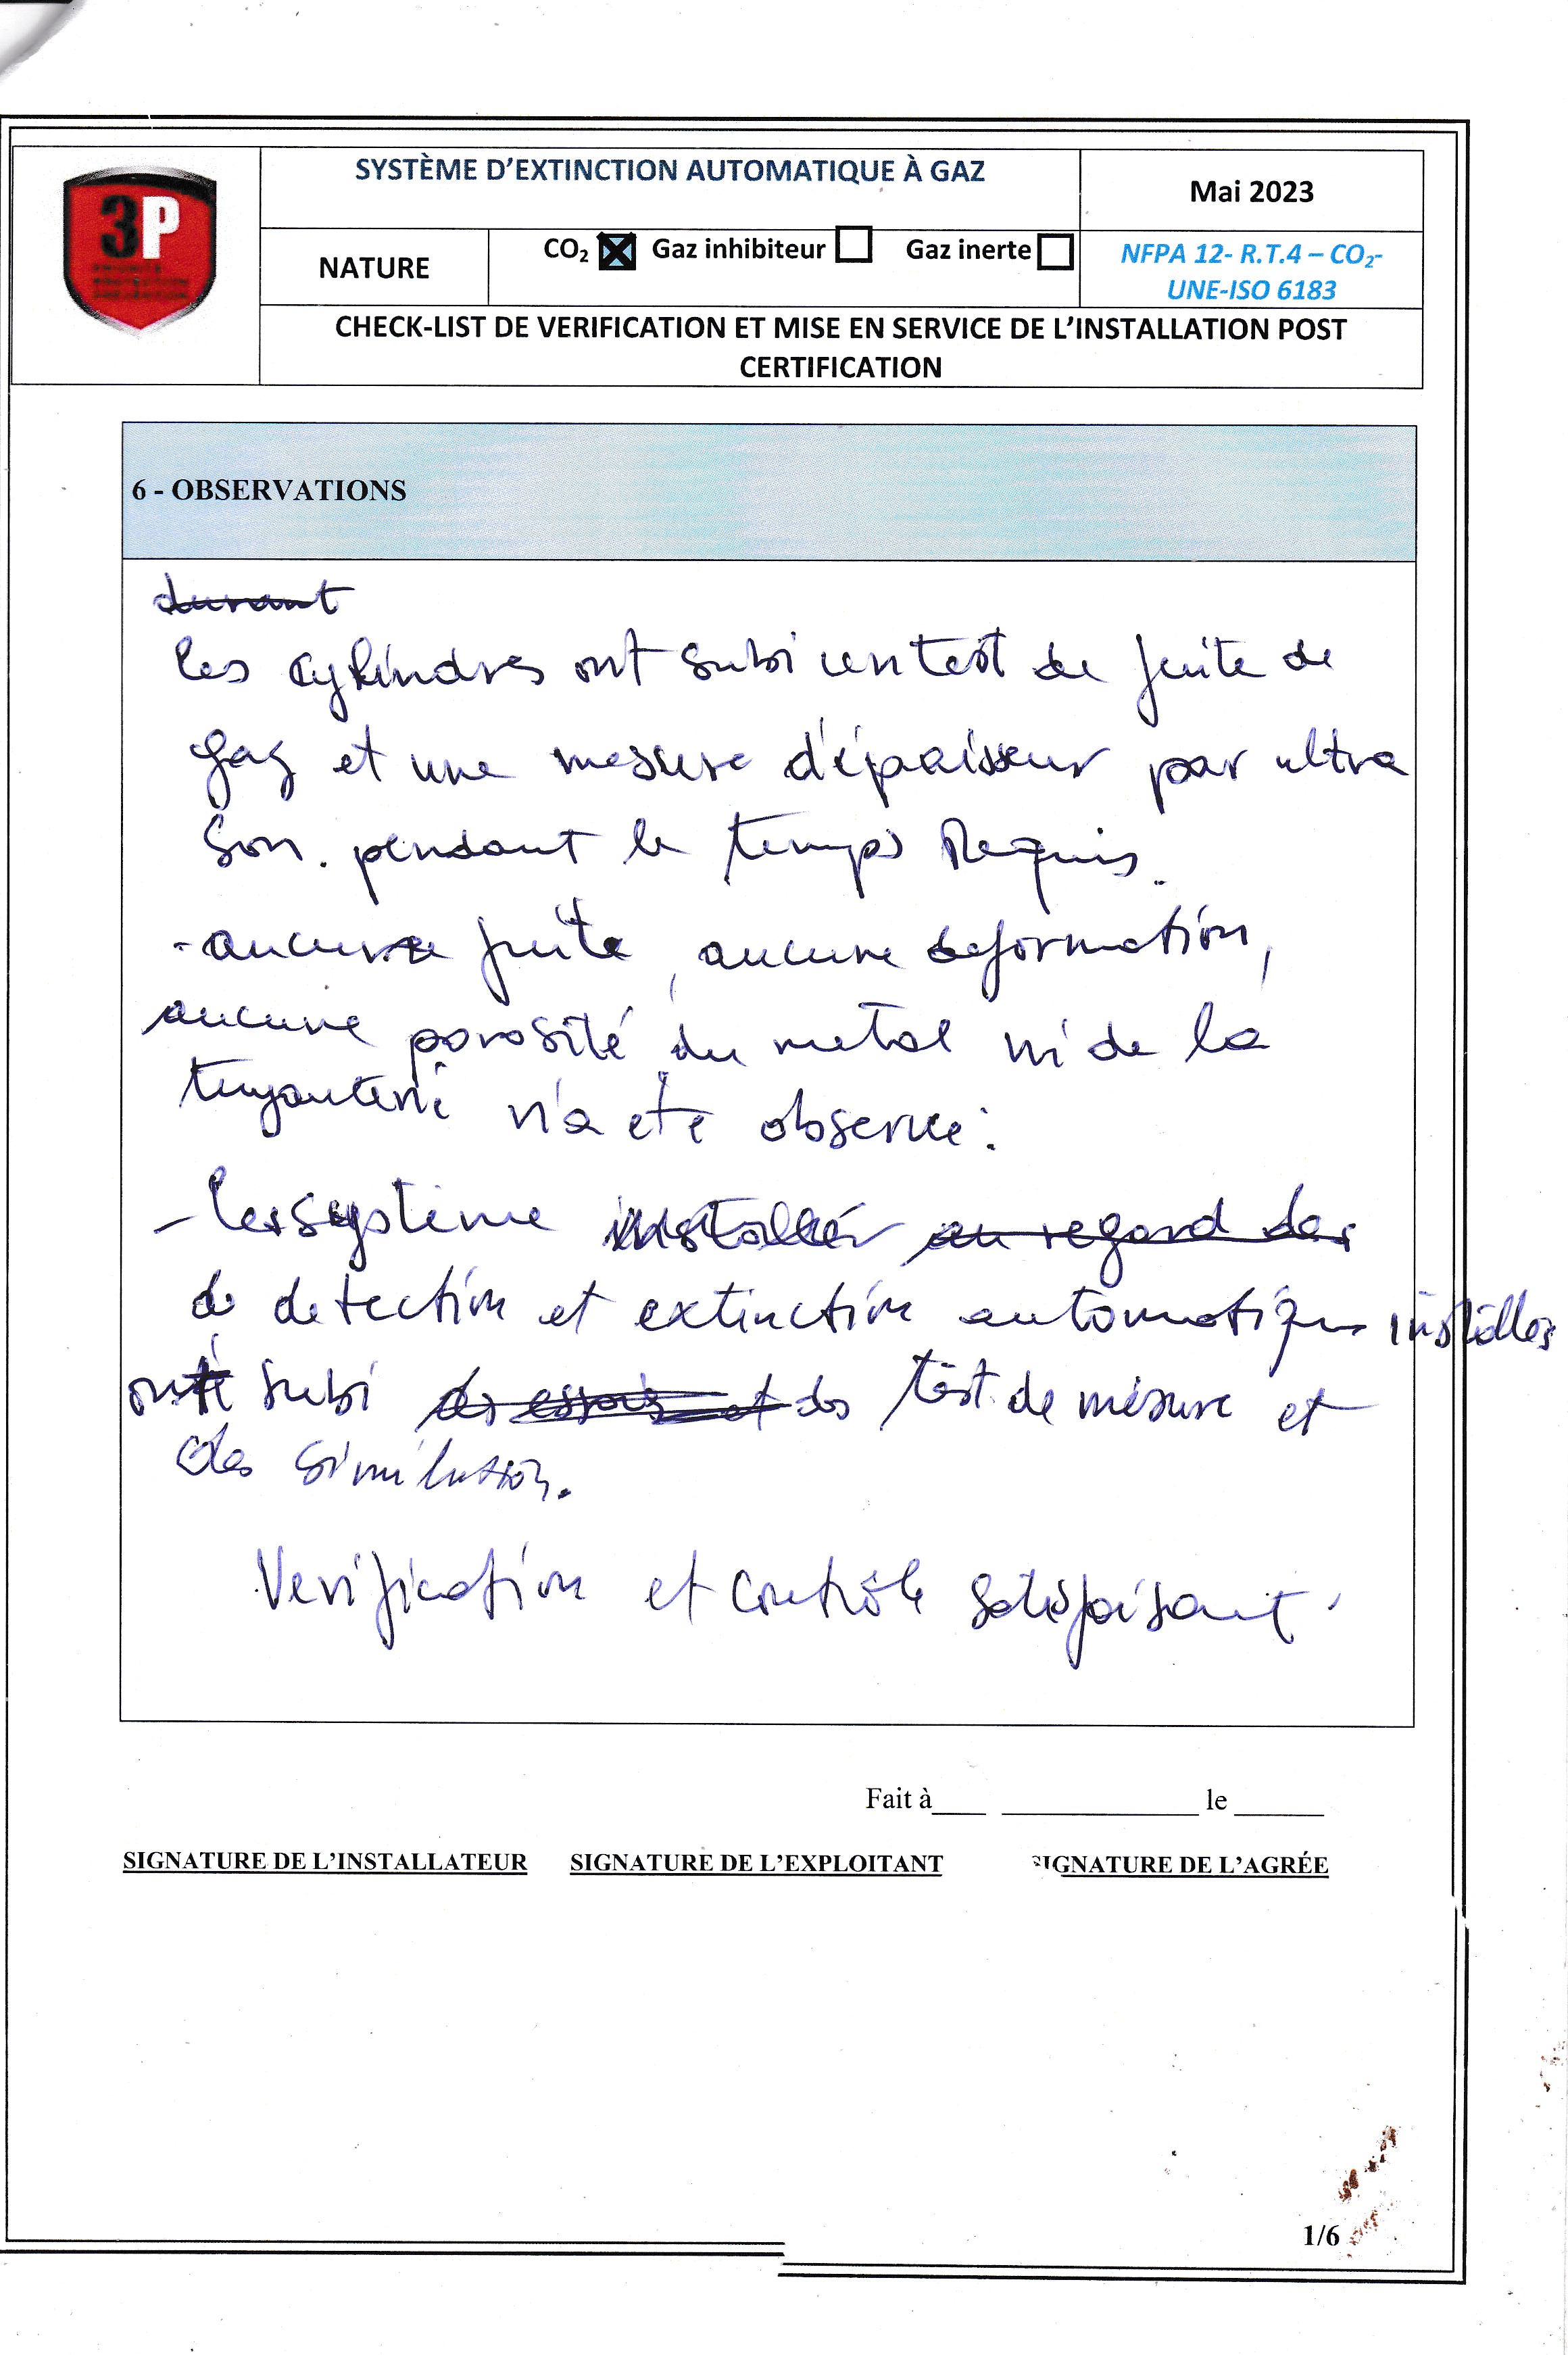 3P
SYSTÈME D'EXTINCTION AUTOMATIQUE À GAZ
Mai 2023
NATURE
CO₂ ☒ Gaz inhibiteur ☐ Gaz inerte ☐
NFPA 12- R.T.4 – CO₂-
UNE-ISO 6183
CHECK-LIST DE VERIFICATION ET MISE EN SERVICE DE L'INSTALLATION POST
CERTIFICATION
6 - OBSERVATIONS
durant
les cylindres ont subi un test de fuite de
gaz et une mesure d'épaisseur par ultra
son. pendant le temps Requis.
- aucune fuite, aucune deformation,
aucune porosité du metal ni de la
tuyauterie n'a été observée.
- les système installer au regard des
de detection et extinction automatique installes
ont subi des essais et des test de mesure et
des simulation.
Verification et contrôle satisfaisant.
Fait à____ _____________ le ______
SIGNATURE DE L'INSTALLATEUR
SIGNATURE DE L'EXPLOITANT
SIGNATURE DE L'AGRÉE
1/6